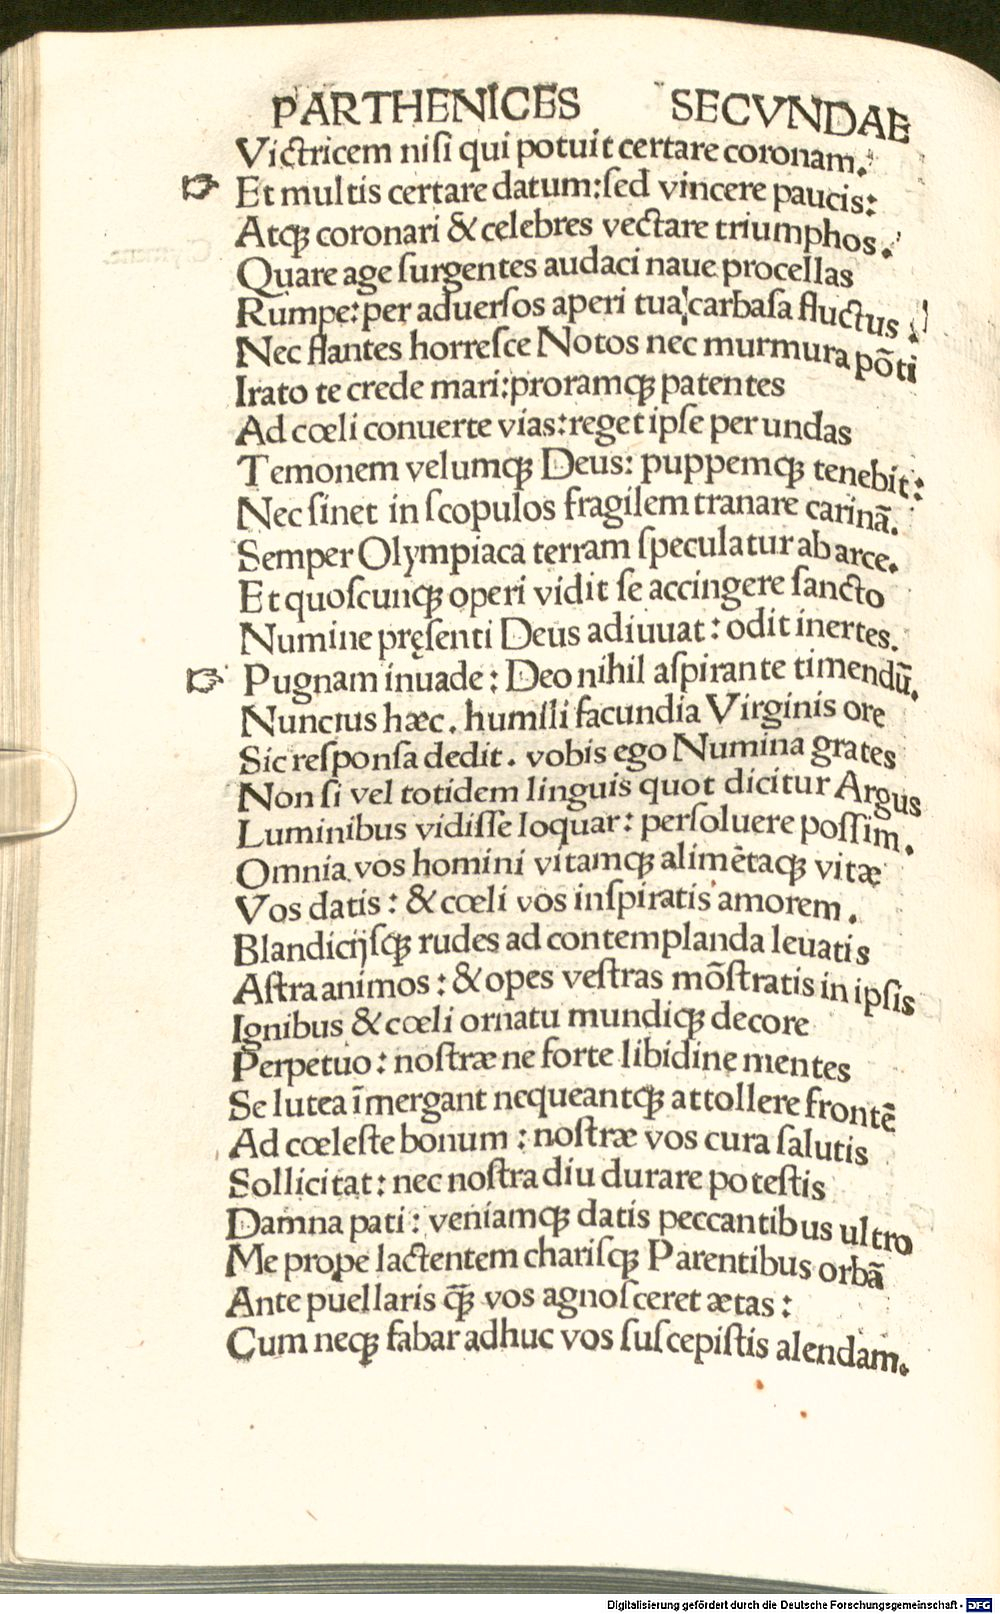 PARTHENICES SECVNDAE
Victricem nisi qui potuit certare coronam.
☞ Et multis certare datum:sed vincere paucis:
Atqꝫ coronari & celebres vectare triumphos.
Quare age surgentes audaci naue procellas
Rumpe:per aduersos aperi tua carbasa fluctus.
Nec flantes horresce Notos nec murmura põti
Irato te crede mari:proramqꝫ patentes
Ad cœli conuerte vias:reget ipse per undas
Temonem velumqꝫ Deus: puppemqꝫ tenebit:
Nec sinet in scopulos fragilem tranare carinã.
Semper Olympiaca terram speculatur ab arce.
Et quoscunqꝫ operi vidit se accingere sancto
Numine pręsenti Deus adiuuat: odit inertes.
☞ Pugnam inuade: Deo nihil aspirante timendũ.
Nuncius hæc. humili facundia Virginis ore
Sic responsa dedit. vobis ego Numina grates
Non si vel totidem linguis quot dicitur Argus
Luminibus vidisse loquar: persoluere possim.
Omnia vos homini vitamqꝫ alimẽtaqꝫ vitæ
Vos datis: & cœli vos inspiratis amorem.
Blandicijsqꝫ rudes ad contemplanda leuatis
Astra animos: & opes vestras mõstratis in ipsis
Ignibus & cœli ornatu mundiqꝫ decore
Perpetuo: nostræ ne forte libidine mentes
Se lutea ĩmergant nequeantqꝫ attollere frontẽ
Ad cœleste bonum: nostræ vos cura salutis
Sollicitat: nec nostra diu durare potestis
Damna pati: veniamqꝫ datis peccantibus ultro
Me prope lactentem charisqꝫ Parentibus orbã
Ante puellaris q̃ꝫ vos agnosceret ætas:
Cum neqꝫ fabar adhuc vos suscepistis alendam.
Digitalisierung gefördert durch die Deutsche Forschungsgemeinschaft - DFG